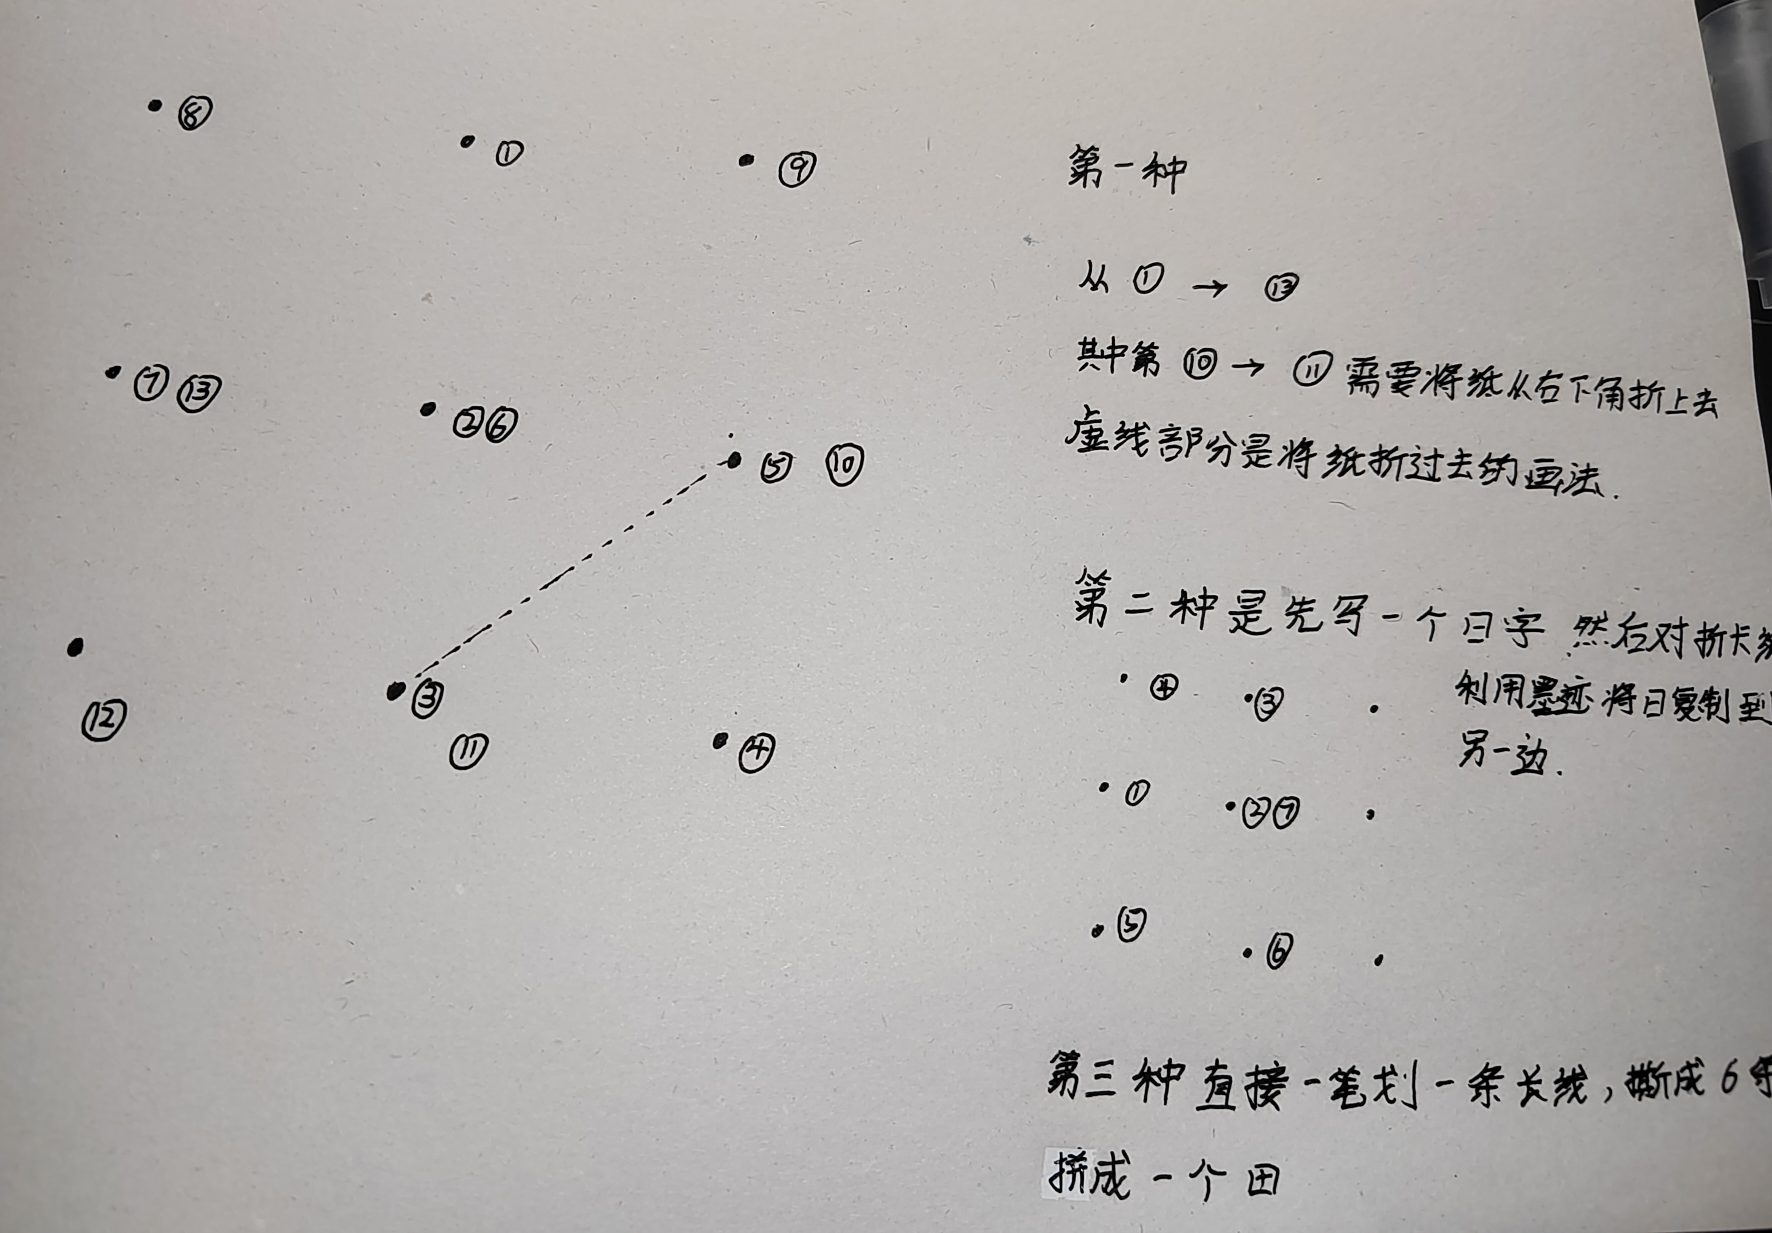 ⑧
① ⑨
⑦ ⑬
②⑥
⑤ ⑩
③
⑫
⑪ ④
第一种
从 ① → ⑬
其中第 ⑩ → ⑪ 需要将纸从右下角折上去
虚线部分是将纸折过去的画法.
第二种是先写一个日字 然后对折卡纸
利用墨迹将日复制到
另一边.
④ ③
① ②⑦
⑤ ⑥
第三种直接一笔划一条长线,撕成6条
拼成一个田